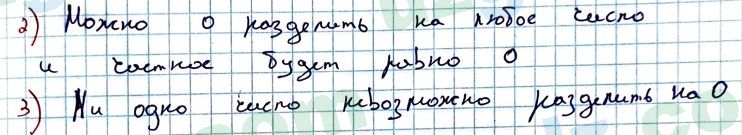 2) Можно 0 разделить на любое число
и частное будет равно 0
3) Ни одно число невозможно разделить на 0